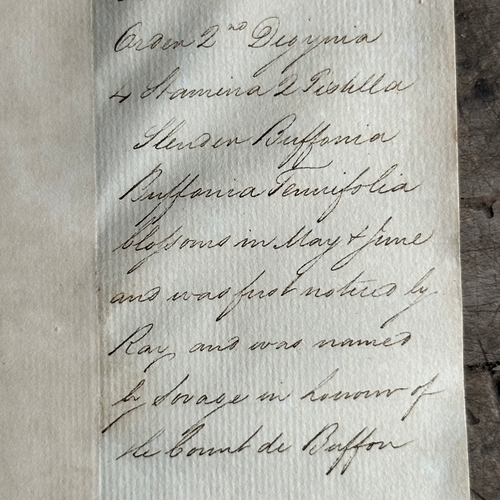 Order 2nd Digynia
4 Stamina 2 Pistilla
Slender Buffonia
Buffonia Tenuifolia
blossoms in May & June
and was first noticed by
Ray and was named
by Sovage in honour of
the Count de Buffon